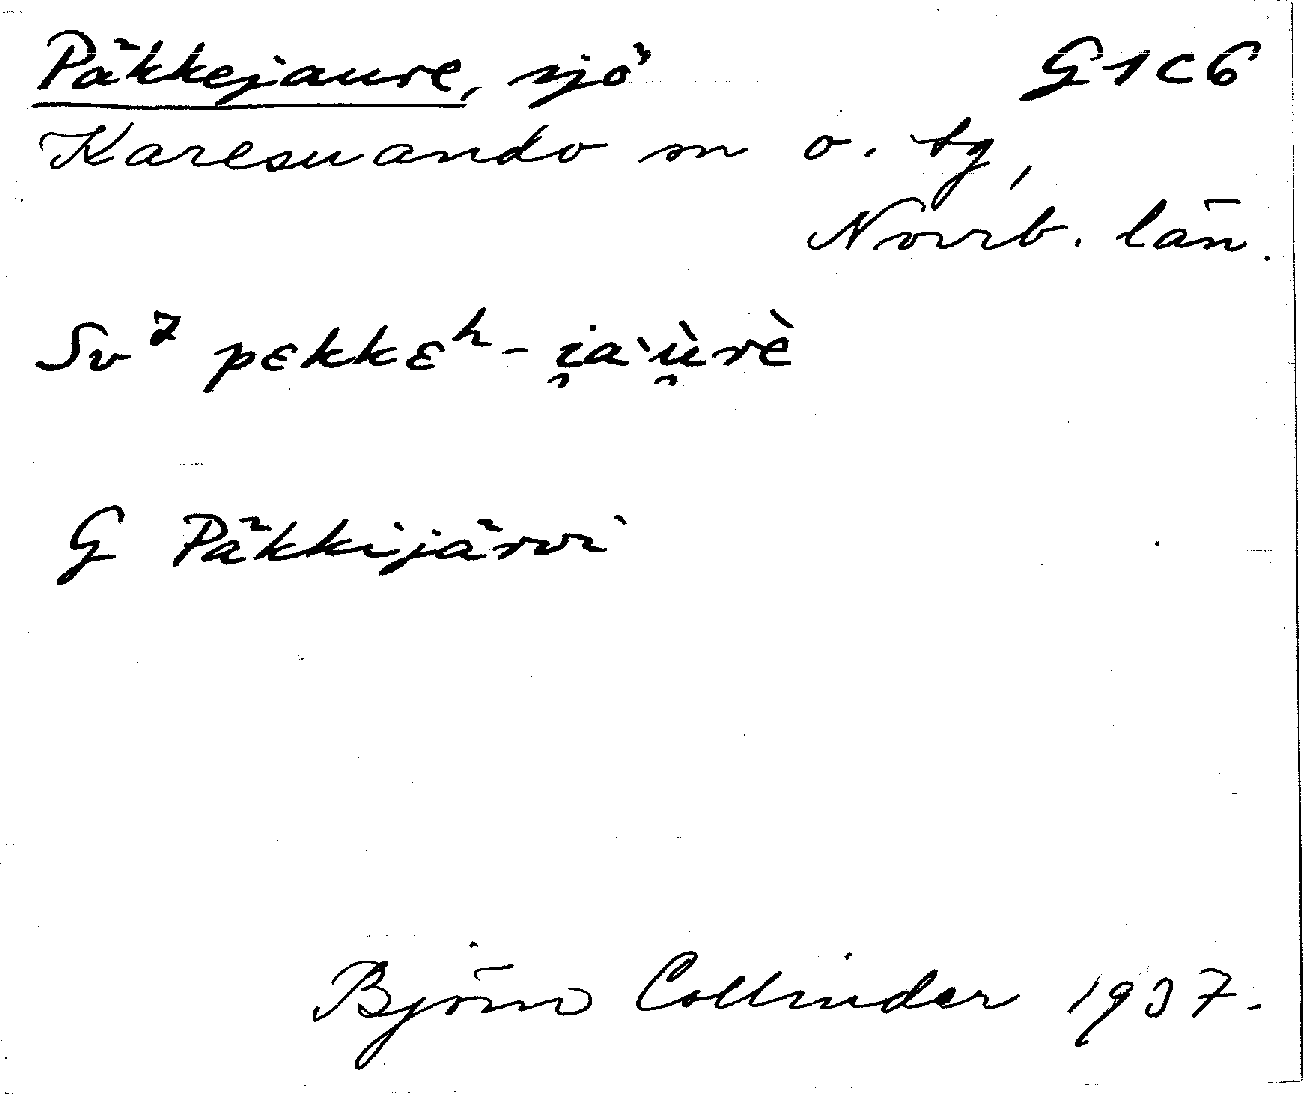 Päkkejaure, sjö G1c6
Karesuando sn o. tg,
Norrb. län.
Sv 7 pɛkkɛʰ-i̯a`ù̯rè
G Päkkijärvi
Björn Collinder 1937.